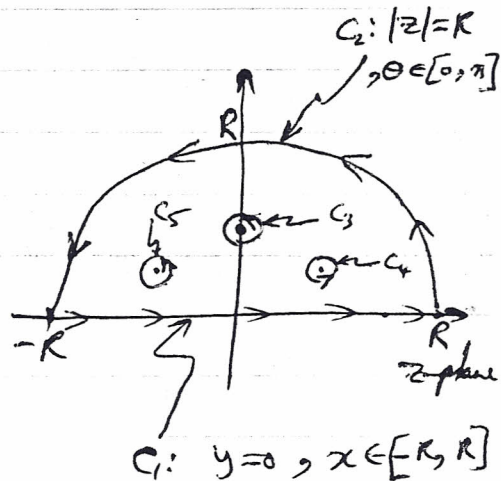 C₂: |z|=R
, θ∈[0, π]
R
C₅
C₃
C₄
-R
R
z-plane
C₁: y=0, x∈[-R, R]